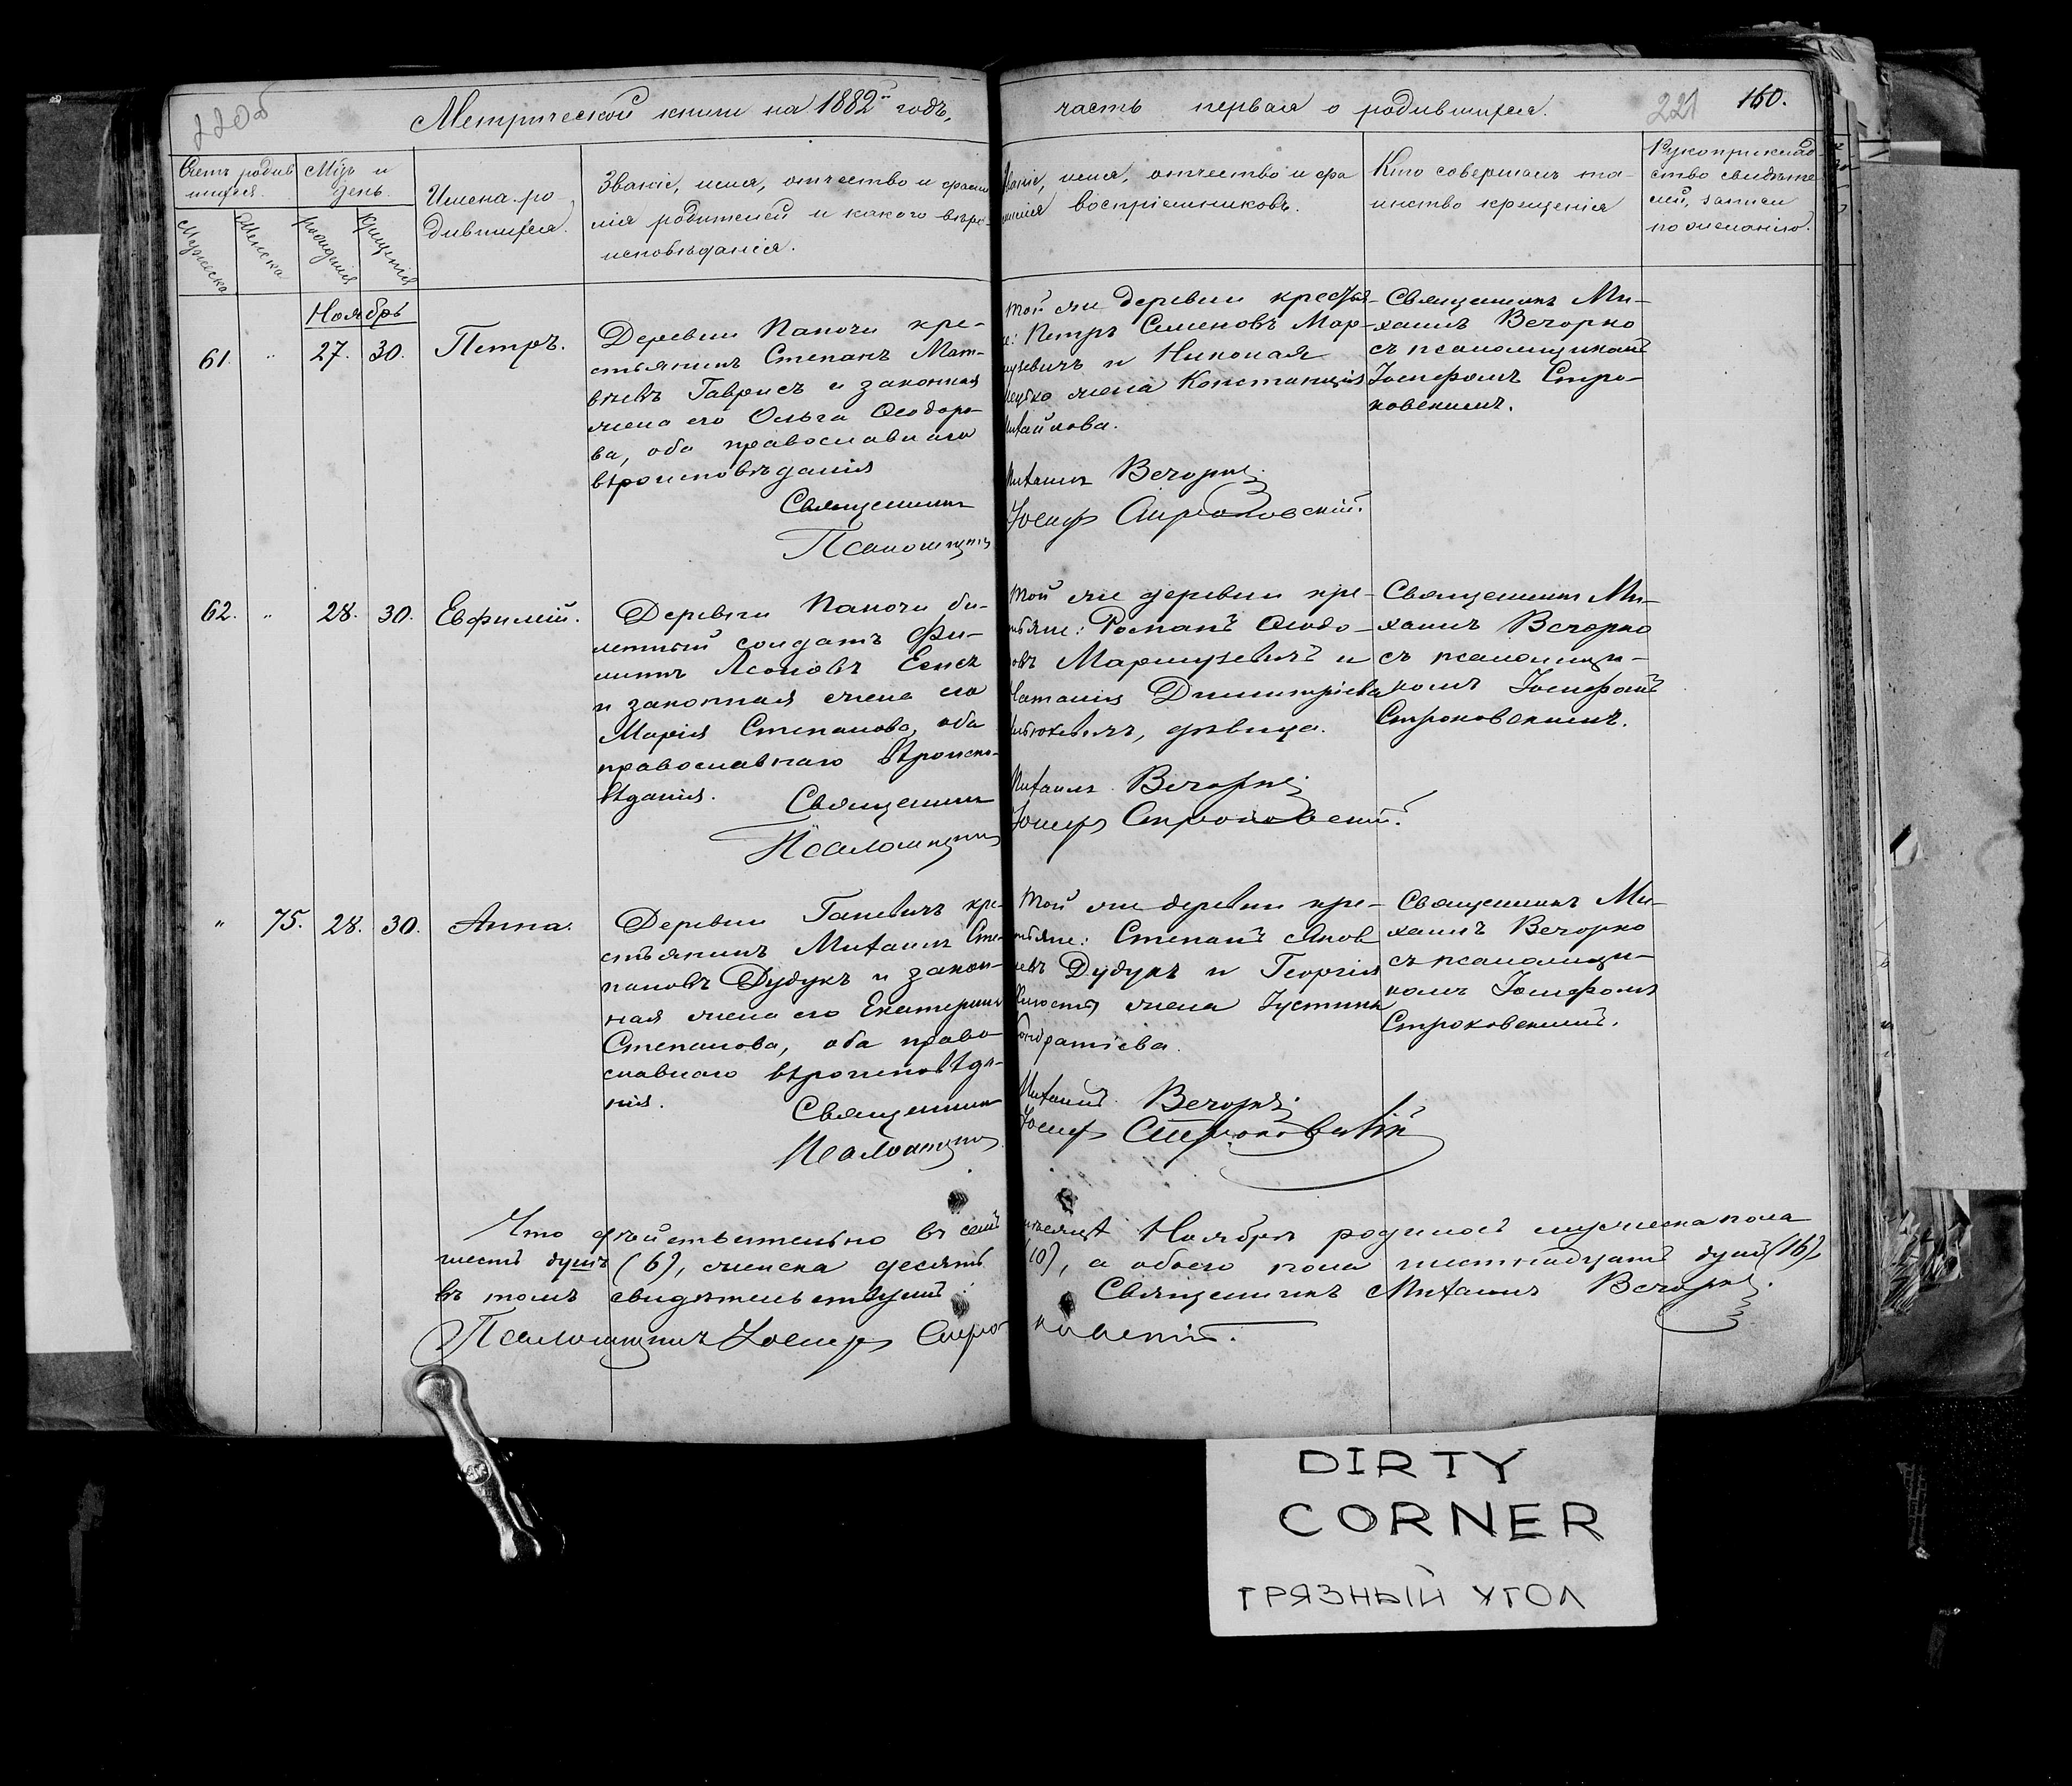 220об
Метрической книги на 1882й годъ,
часть первая о родившихся.
221 160.
Счетъ родив
шихся.
Мужеска
Женска
Мцъ и
день.
рожденія
крещенія
Имена ро
дившихся.
Званіе, имя, отчество и фами
лія родителей и какого вѣро-
исповѣданія.
Званіе, имя, отчество и фа
милія воспріемниковъ.
Кто совершалъ та-
инство крещенія
Рукоприклад
ство свидѣте
лей, записи
по желанію.
Ноябрь
61. " 27. 30. Петръ.
Деревни Папочи кре-
стьянинъ Степанъ Мат-
вѣевъ Гаврисъ и законная
жена его Ольга Ѳеодоро-
ва, оба православнаго
вѣроисповѣданія
Священникъ
Псаломщикъ
той же деревни крестья-
Петръ Семеновъ Мар-
и Николая
жена Констанція
Михайлова.
Михаилъ Вечорко
Іосифъ Строковскій.
Священникъ Ми-
хаилъ Вечорко
съ псаломщикомъ
Іосифомъ Стро-
ковскимъ.
62. " 28. 30. Евфимій.
Деревни Папочи би-
летный солдатъ Фи-
липпъ Леоновъ
и законная жена его
Марія Степанова, оба
православнаго вѣроиспо-
вѣданія.
Священникъ
Псаломщикъ
той же деревни кре-
стьяне: Романъ Ѳеодо-
ровъ и
Наталія Димитріева
дѣвица.
Михаилъ Вечорко
Іосифъ Строковскій.
Священникъ Ми-
хаилъ Вечорко
съ псаломщи-
комъ Іосифомъ
Строковскимъ.
" 75. 28. 30. Анна.
Деревни Ганевичъ кре-
стьянинъ Михаилъ Сте-
пановъ Дудукъ и закон-
ная жена его Екатерина
Степанова, оба право-
славнаго вѣроисповѣда-
нія.
Священникъ
Псаломщикъ
той же деревни кре-
стьяне: Степанъ Яков
левъ Дудукъ и Георгія
жена Іустина
Кондратіева.
Михаилъ Вечорко
Іосифъ Строковскій
Священникъ Ми-
хаилъ Вечорко
съ псаломщи-
комъ Іосифомъ
Строковскимъ.
Что дѣйствительно въ семъ мѣсяцѣ Ноябрѣ родилось мужеска пола
шесть душъ (6), женска десять (10), а обоего пола шестнадцать душъ (16),
въ томъ свидѣтельствуемъ: Священникъ Михаилъ Вечорко
Псаломщикъ Іосифъ Строковскій.
DIRTY
CORNER
ГРЯЗНЫЙ УГОЛ